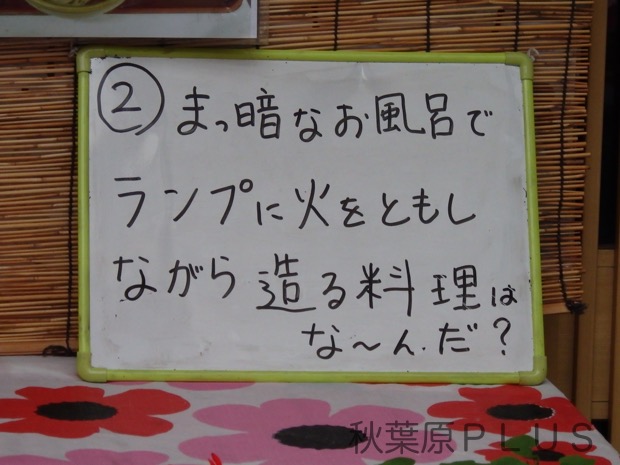 ② まっ暗なお風呂で
ランプに火をともし
ながら造る料理は
な〜んだ?
秋葉原PLUS